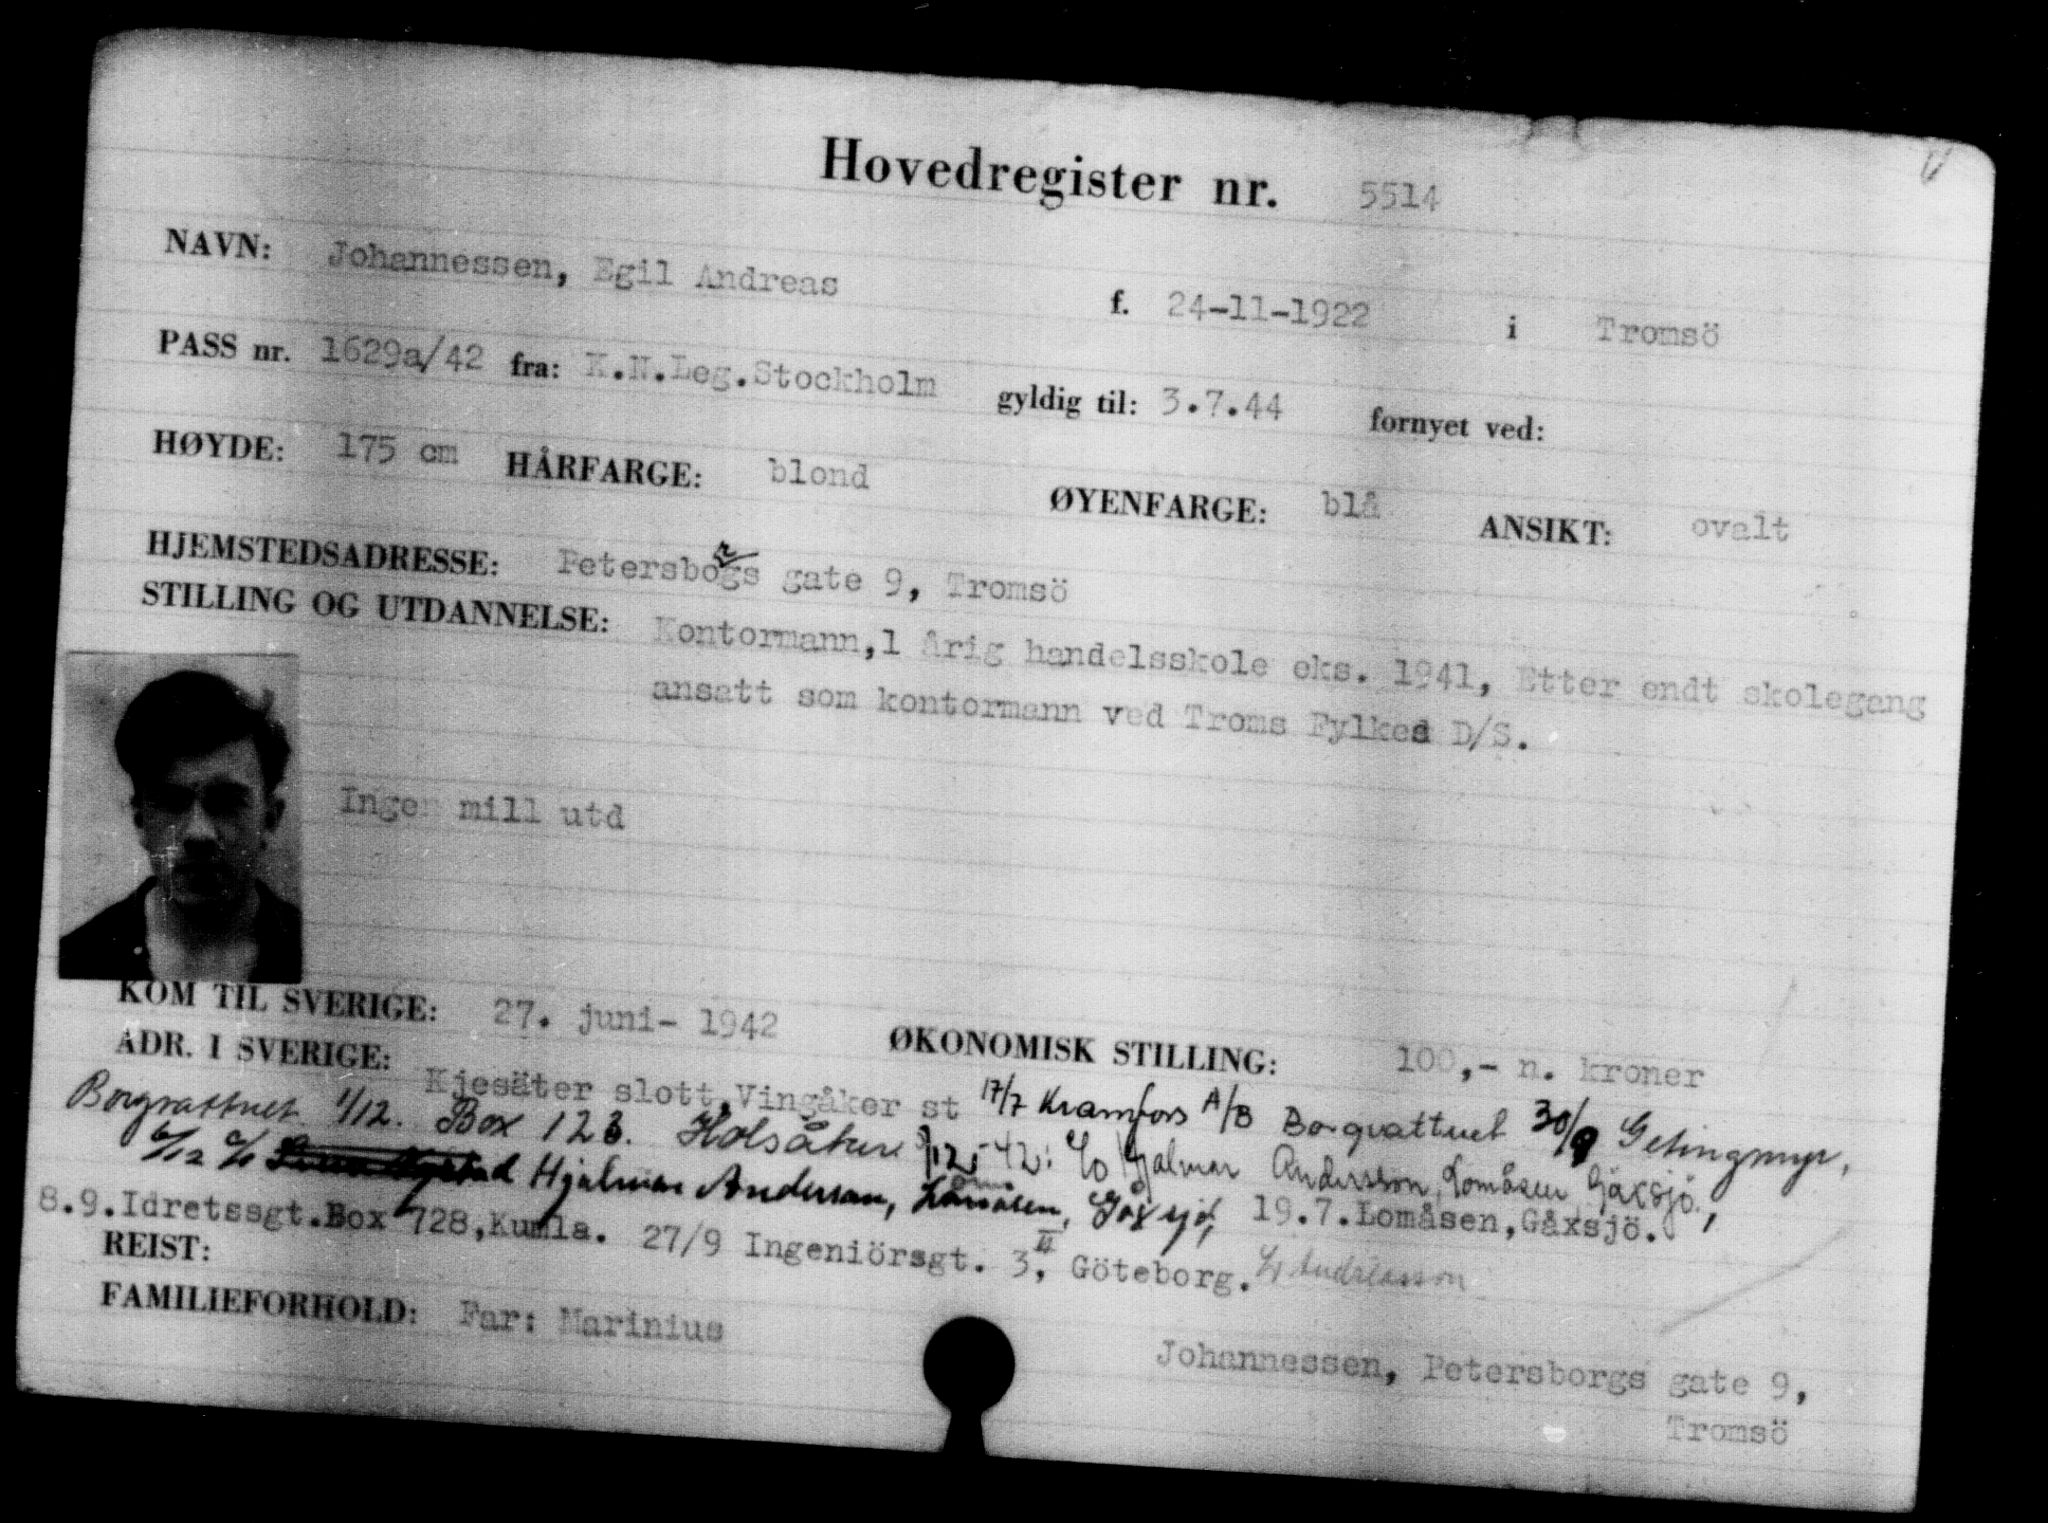 Hovedregister nr. 5514
NAVN: Johannessen, Egil Andreas f. 24-11-1922 i Tromsö
PASS nr. 1629a/42 fra: K.N.Leg.Stockholm gyldig til: 3.7.44 fornyet ved:
HØYDE: 175 cm HÅRFARGE: blond ØYENFARGE: blå ANSIKT: ovalt
HJEMSTEDSADRESSE: Petersborgs gate 9, Tromsö
STILLING OG UTDANNELSE: Kontormann,1 årig handelsskole eks. 1941, Etter endt skolegang
ansatt som kontormann ved Troms Fylkes D/S.
Ingen mill utd
KOM TIL SVERIGE: 27. juni- 1942 ØKONOMISK STILLING: 100,- n. kroner
ADR. I SVERIGE: Kjesäter slott,Vingåker st 17/7 Kramfors A/B Borgvattnet 30/9 Getingmyr,
Borgvattnet 1/12. Box 123. Holsåker /12-42: c/o Hjalmar Andersson, Lomåsen, Gåxsjö,
6/12 c/o Hjalmar Anderson, Lomåsen, Gåxsjö, 19.7.Lomåsen,Gåxsjö.
8.9.Idretssgt.Box 728,Kumla. 27/9 Ingeniörsgt. 3, II Göteborg. c/o Andreasson
REIST:
FAMILIEFORHOLD: Far: Marinius Johannessen, Petersborgs gate 9,
Tromsö